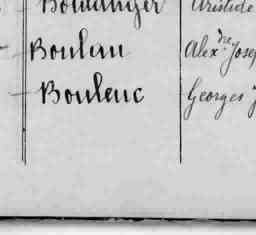 Boulanger Aristide
Boulau Alexdre Josep
Bouleuc Georges J